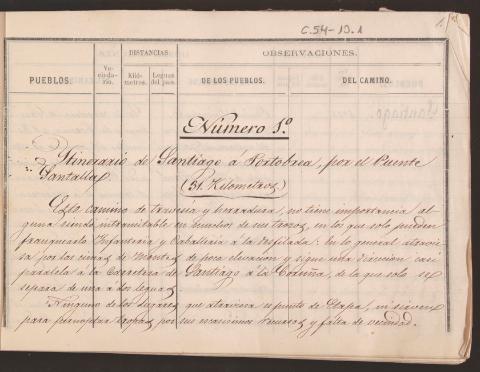 C.54-19.1
1.
DISTANCIAS.
OBSERVACIONES.
PUEBLOS.
Vecindario.
Kilómetros.
Leguas del país.
DE LOS PUEBLOS.
DEL CAMINO.
Número 1.º
Itinerario de Santiago á Portobrea, por el Puente
Santalla
(51. Kilómetros)
Este camino de travesía y herradura, no tiene importancia al-
guna siendo intransitable en muchos de sus trozos, en los que solo pueden
franquearlo Infantería y Caballería á la desfilada: En lo general atravie-
sa por las cimas de Montes de poca elevacion y sigue una direccion casi
paralela á la Carretera de Santiago á la Coruña, de la que solo se
separa de una á dos leguas.
Ninguno de los lugares que atraviesa es punto de Etapa, ni sirven
para pernoctar tropas por sus escasísimos recursos y falta de vecindad.